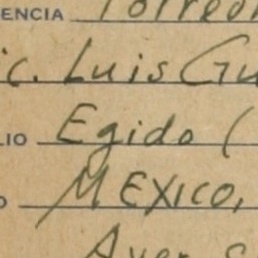 ENCIA Torreón
ic. Luis Gu
LIO Egido (
O MEXICO,